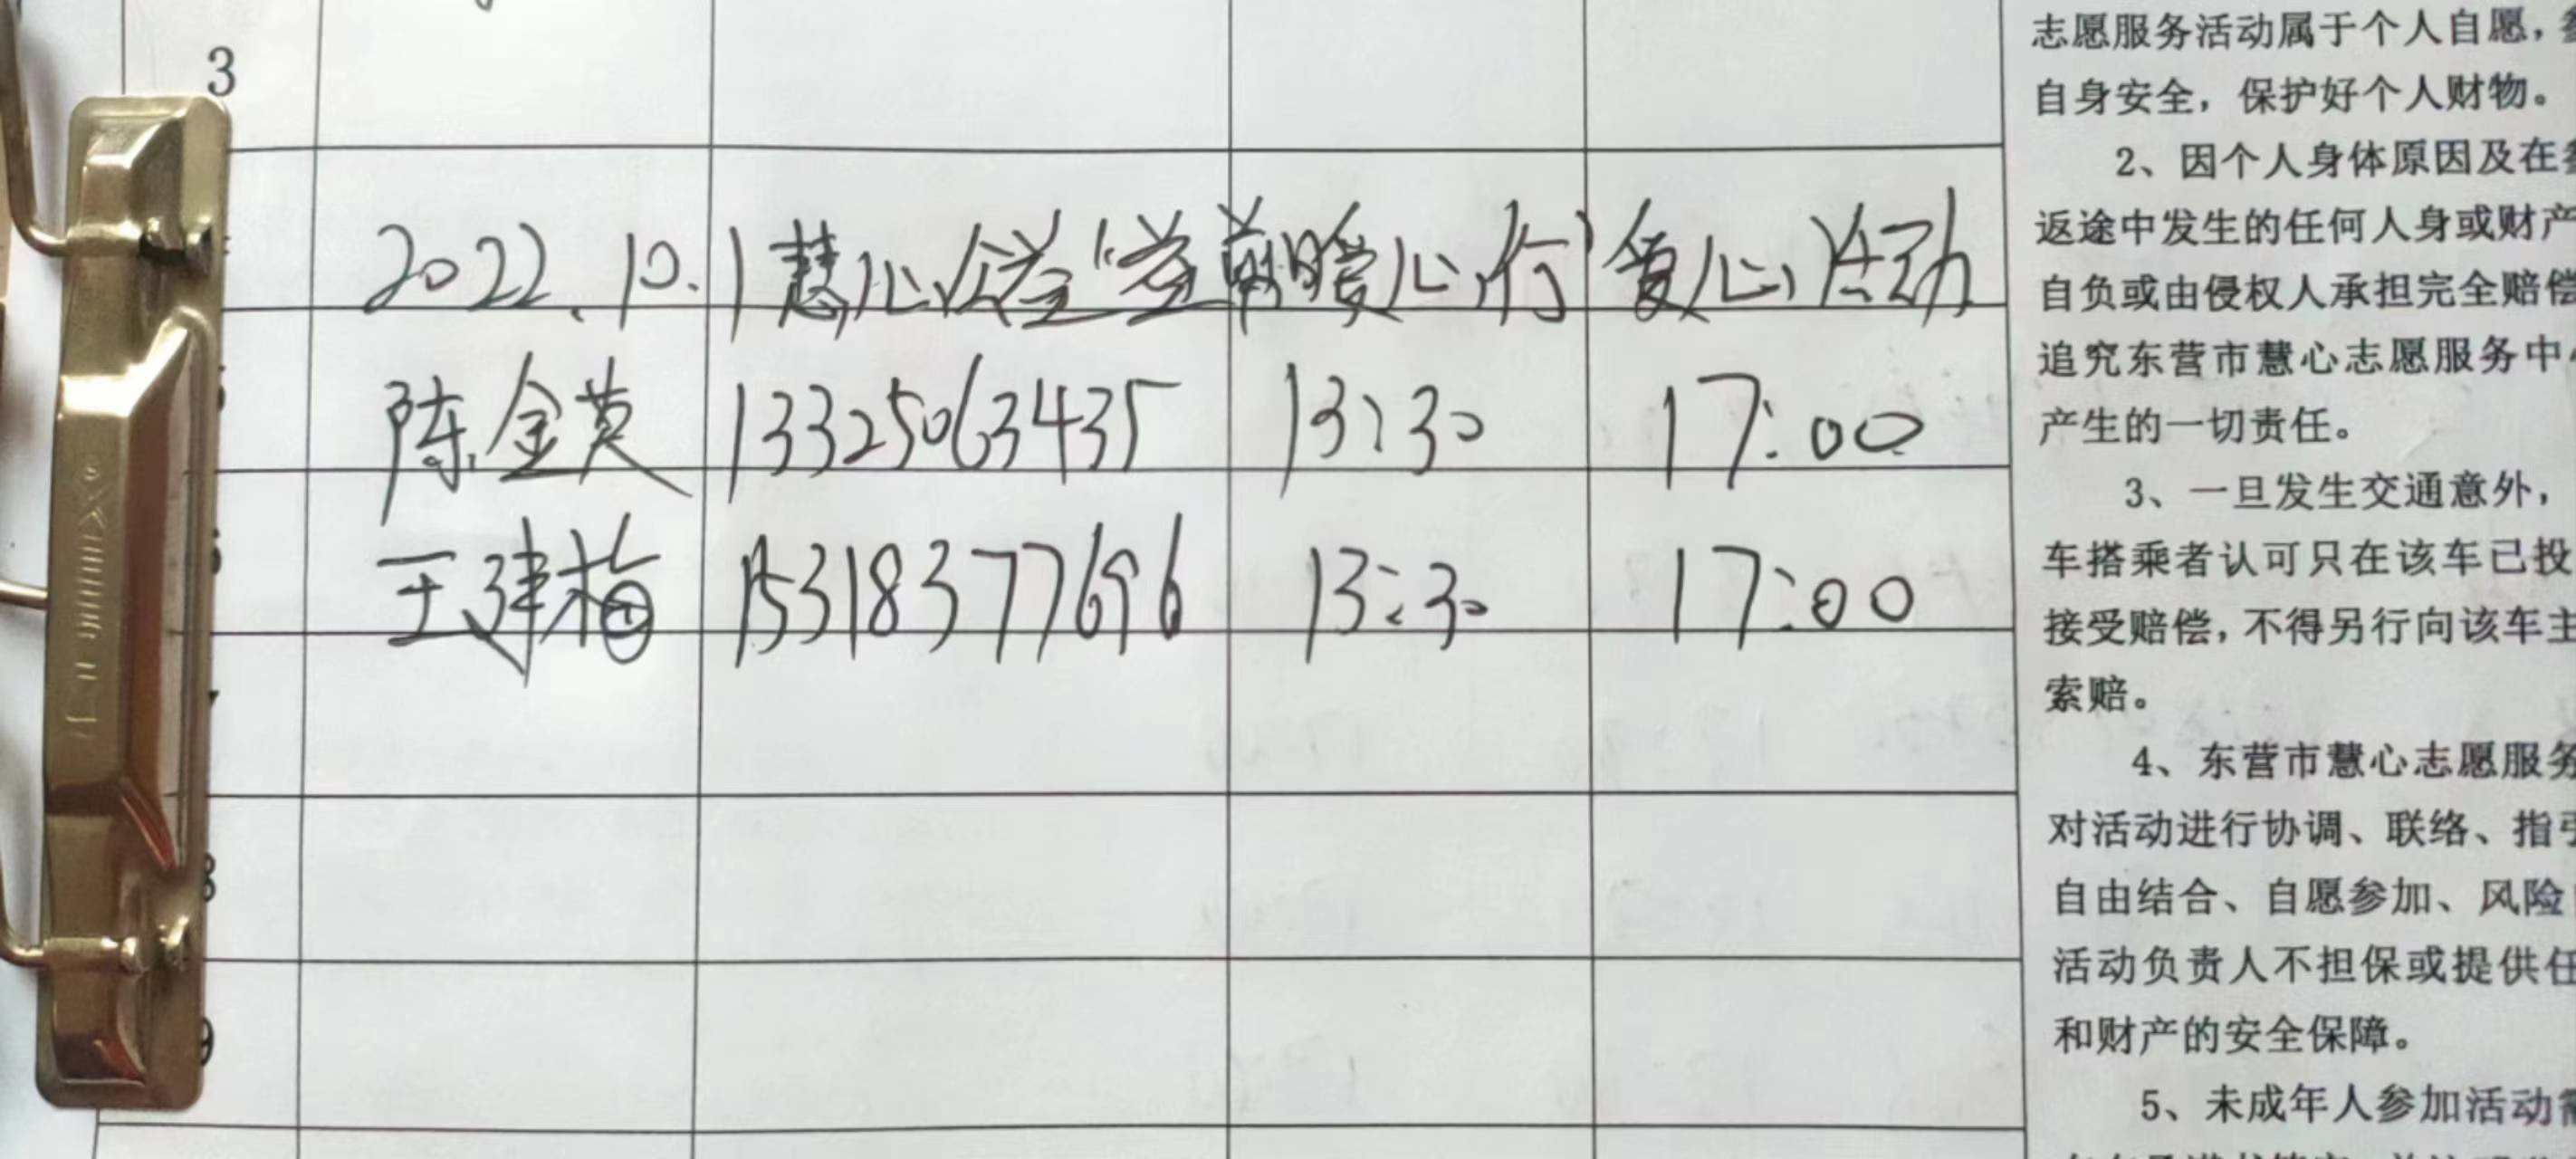 3
2022.10.1慧心公益"益剪暖心行"爱心活动
陈金英 13325063435 13:30 17:00
王建梅 15318377696 13:30 17:00
8
9
志愿服务活动属于个人自愿，
自身安全，保护好个人财物。
2、因个人身体原因及在
返途中发生的任何人身或财产
自负或由侵权人承担完全赔偿
追究东营市慧心志愿服务中
产生的一切责任。
3、一旦发生交通意外，
车搭乘者认可只在该车已投
接受赔偿，不得另行向该车主
索赔。
4、东营市慧心志愿服务
对活动进行协调、联络、指引
自由结合、自愿参加、风险
活动负责人不担保或提供任
和财产的安全保障。
5、未成年人参加活动需